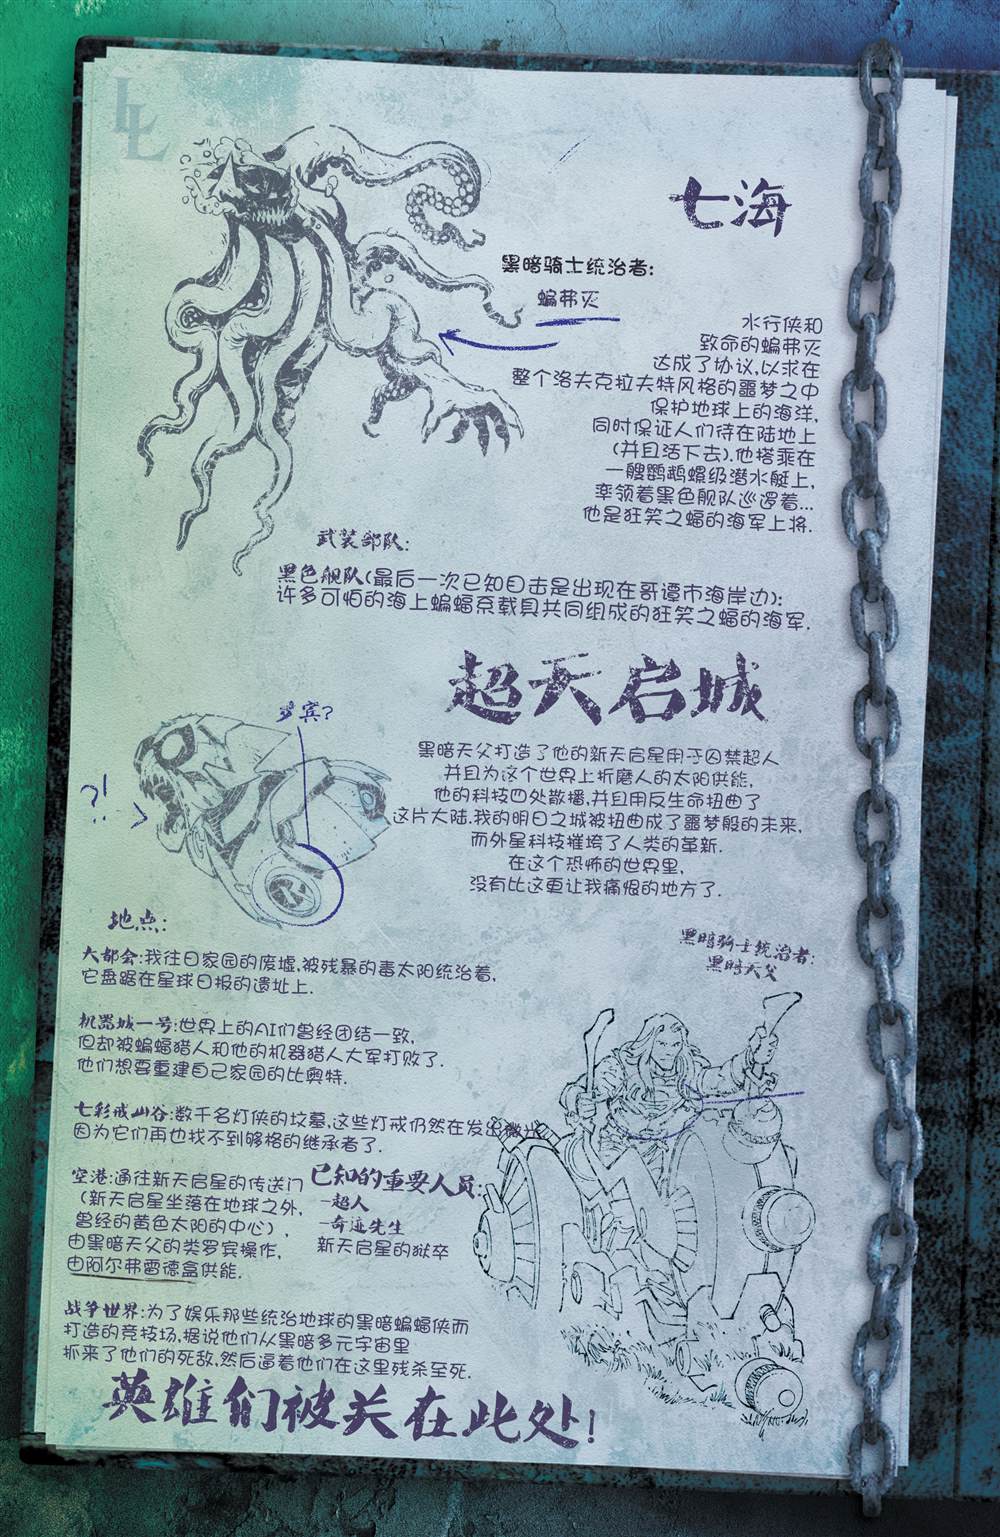 LL
七海
黑暗骑士统治者:
蝙弗灭
水行侠和
致命的蝙弗灭
达成了协议,以求在
整个洛夫克拉夫特风格的噩梦之中
保护地球上的海洋,
同时保证人们待在陆地上
(并且活下去).他搭乘在
一艘鹦鹉螺级潜水艇上,
率领着黑色舰队巡逻着...
他是狂笑之蝠的海军上将.
武装部队:
黑色舰队(最后一次已知目击是出现在哥谭市海岸边):
许多可怕的海上蝙蝠系载具共同组成的狂笑之蝠的海军.
超天启城
罗宾?
?!
黑暗天父打造了他的新天启星用于囚禁超人
并且为这个世界上折磨人的太阳供能,
他的科技四处散播,并且用反生命扭曲了
这片大陆.我的明日之城被扭曲成了噩梦般的未来,
而外星科技摧垮了人类的革新.
在这个恐怖的世界里,
没有比这更让我痛恨的地方了.
黑暗骑士统治者:
黑暗天父
地点:
大都会:我往日家园的废墟,被残暴的毒太阳统治着,
它盘踞在星球日报的遗址上.
机器城一号:世界上的AI们曾经团结一致,
但却被蝙蝠猎人和他的机器猎人大军打败了.
他们想要重建自己家园的比奥特.
七彩戒山谷:数千名灯侠的坟墓,这些灯戒仍然在发出微光
因为它们再也找不到够格的继承者了.
空港:通往新天启星的传送门
(新天启星坐落在地球之外,
曾经的黄色太阳的中心),
由黑暗天父的类罗宾操作,
由阿尔弗雷德盒供能.
已知的重要人员:
-超人
-奇迹先生
新天启星的狱卒
战争世界:为了娱乐那些统治地球的黑暗蝙蝠侠而
打造的竞技场.据说他们从黑暗多元宇宙里
抓来了他们的死敌,然后逼着他们在这里残杀至死.
英雄们被关在此处!